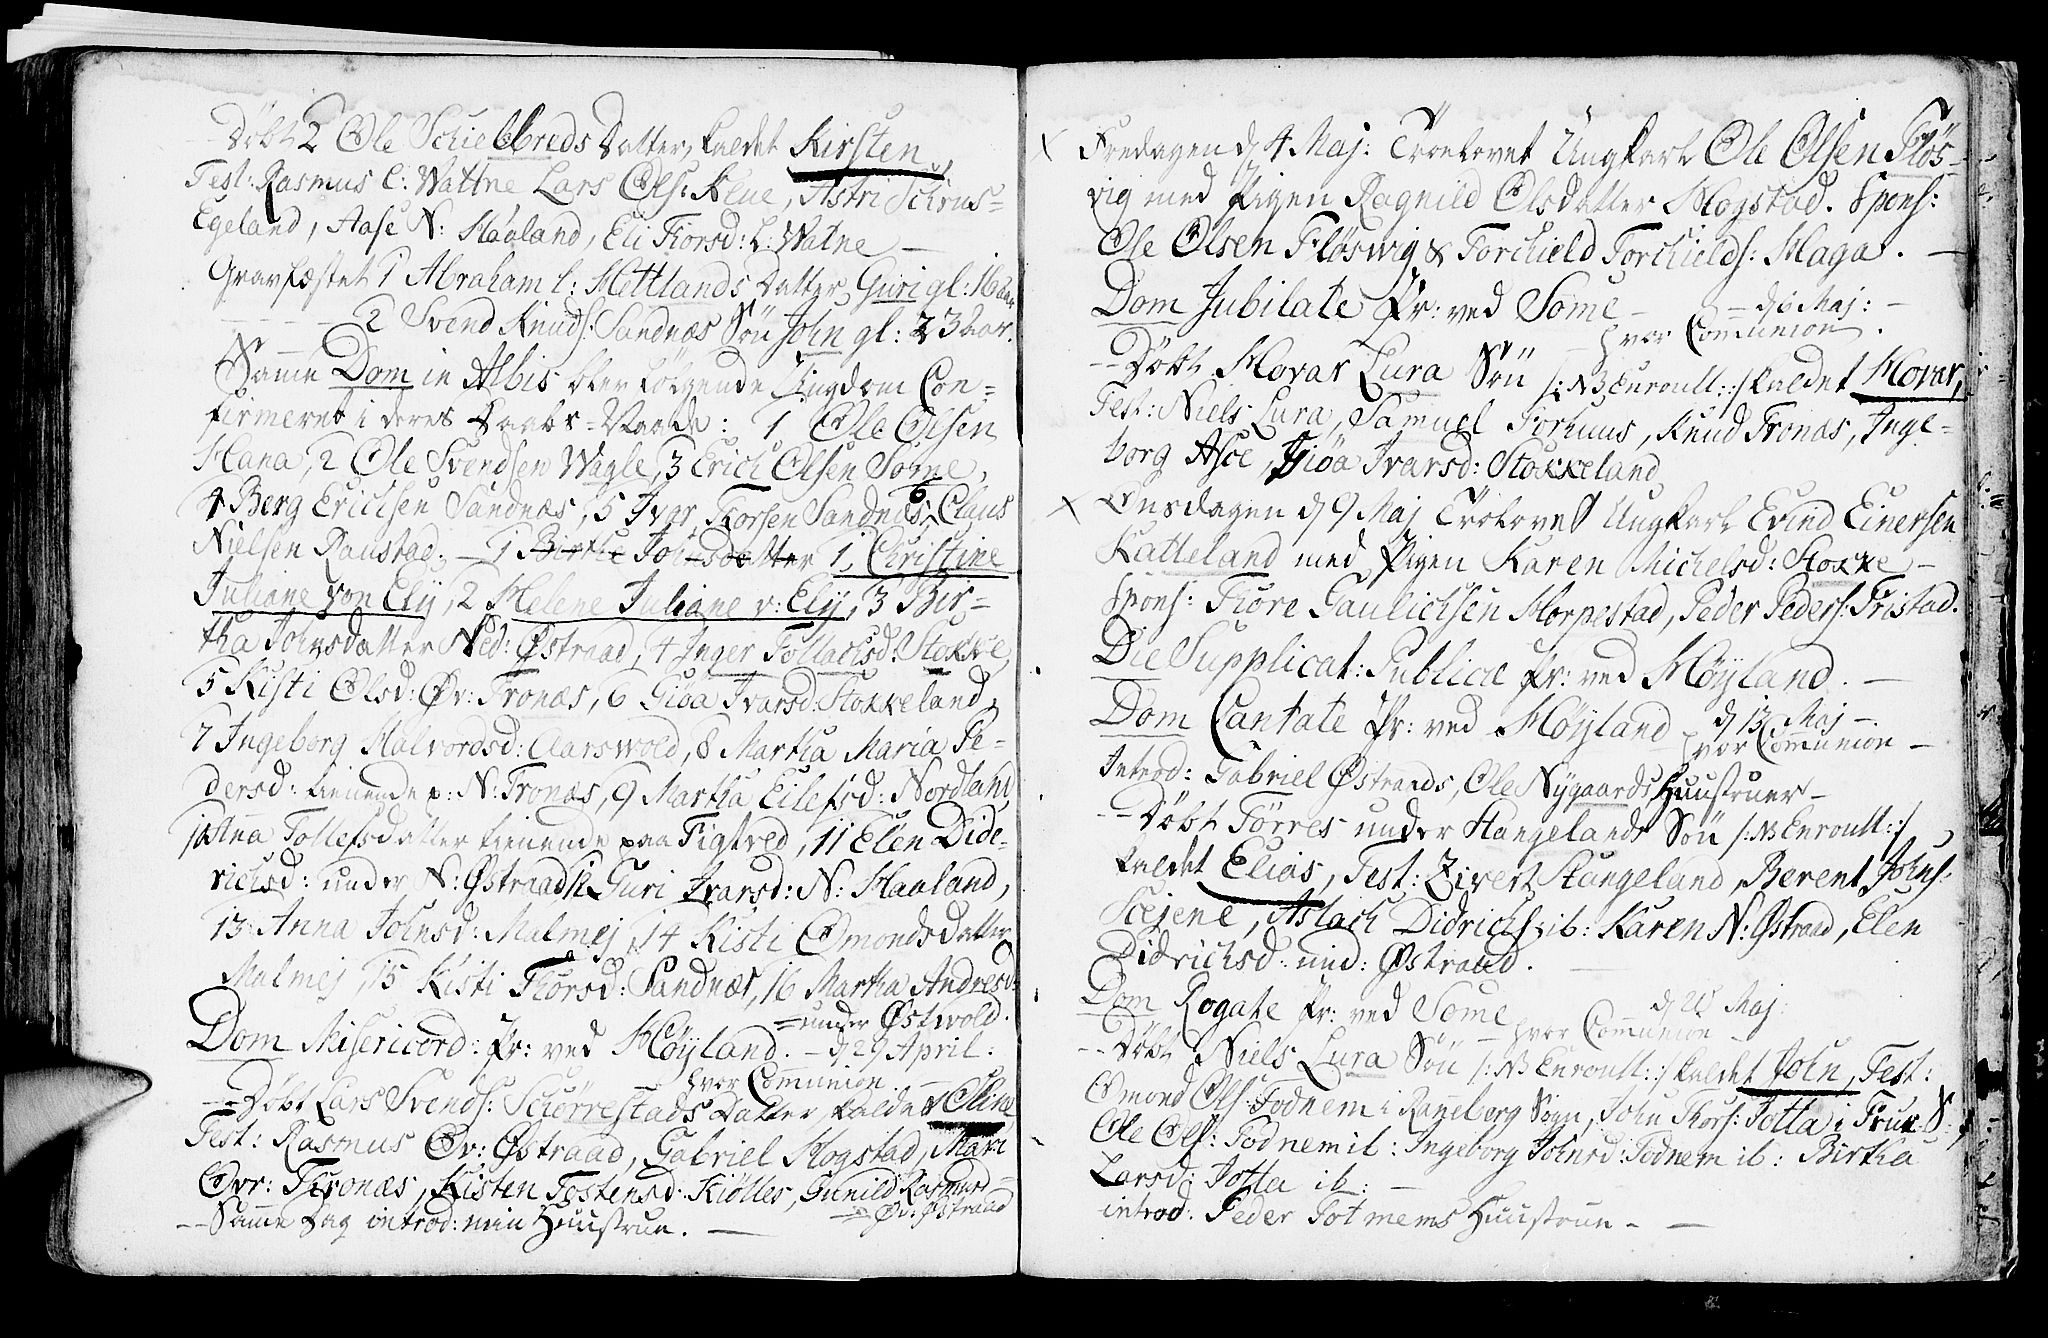 Døbt 2 Ole Schielbreds Datter, kaldet Kirsten
Test: Rasmus l: Wattne Lars Ols: Alue, Astri Schrus=
Egeland, Aase N: Haaland, Eli Thorsd: l: Watne —
Gravfæstet 1 Abraham l: Mettlands Datter Guri gl: 16 aar
— — — 2 Svend Knuds: Sandnæs Søn John gl: 23 aar.
Samme Dom in Albis blev følgende Ungdom Con=
firmeret i deres Daabs-Naade: 1 Ole Olsen
Hana, 2 Ole Svendsen Wagle, 3 Erich Olsen Søme,
4 Berg Erichsen Sandnæs, 5 Ivar Thorsen Sandnæs, 6 Claus
Nielsen Raustad. — 1 Birthe Johnsdatter 1, Christine
Juliane von Ely, 2 Helene Juliane v: Ely, 3 Bir=
tha Johnsdatter Ned: Østraad, 4 Inger Tollachsd: Stokke,
5 Kisti Olsd: Øv: Tronæs, 6 Giøa Ivarsd: Stokkeland,
7 Ingeborg Halvordsd: Aarswold, 8 Martha Maria Pe=
dersd: tienende p: N: Tronæs, 9 Martha Eilefsd: Nordland
10 Anna Tollefsdatter tienende paa Figtved, 11 Elen Dide=
richsd: under N: Østraad 12 Guri Ivarsd: N: Haaland,
13 Anna Johnsd: Malmej, 14 Kisti Omondsdatter
Malmej, 15 Kisti Thorsd: Sandnæs, 16 Martha Andresd:
= under Østwold.
Dom Misericord: Pr: ved Høyland. — d 29 April:
hvor Communion. —
— Døbt Lars Svends: Schørrestads Datter, kaldet Olina
Test: Rasmus Øv: Østraad, Gabriel Hogstad, Mari
Øvr: Tronæs, Kisten Tostensd: Kiølles, Gunild Rasmusd
= Øv: Østraad
— Samme Dag introd: min Huustrue. —
x Fredagen d 4 Maj: Troelovet Ungkarl Ole Olsen Fløs=
vig med Pigen Ragnild Olsdatter Hogstad. Spons:
Ole Olsen Fløswig & Torchield Torchields: Haga. —
Dom Jubilate Pr: ved Søme — d 6 Maj: —
hvor Communion.
— Døbt Hovar Lura Søn /: NB Enroull: :/ kaldet Hovar,
Test: Niels Lura, Samuel Forhuus, Knud Tronæs, Inge=
borg Asce, Giøa Ivarsd: Stokkeland
x Onsdagen d 9 Maj Trolovet Ungkarl Evind Einersen
Katteland med Pigen Karen Michelsd: Stokke —
Spons: Thore Gaulichsen Horpestad, Peder Peders: Tristad.
Die Supplicat: Publicæ Pr: ved Høyland. —
Dom Cantate Pr: ved Høyland d 13 Maj —
hvor Communion —
Introd: Gabriel Østraads, Ole Nygaards Huustruer —
— Døbt Tørres under Hangelands Søn /: NB Enroull: :/
kaldet Elias, Test: Zivert Stangeland, Berent Johns:
Schjene, Aslach Didrichs: ib: Karen N: Østraad, Elen
Didrichsd: und: Østraad. —
Dom Rogate Pr: ved Søme d 20 Maj:
hvor Communion —
— Døbt Niels Lura Søn /: NB Enroull: :/ kaldet John, Test:
Omond Ols: Todnem i Ranneberg Sogn, John Thors: Jotta i Frue S:
Ole Ols: Todnem ib: Ingeborg Johnsd: Todnem ib: Birtha
Larsd: Jotta ib: —
introd: Peder Totmems Huustrue —